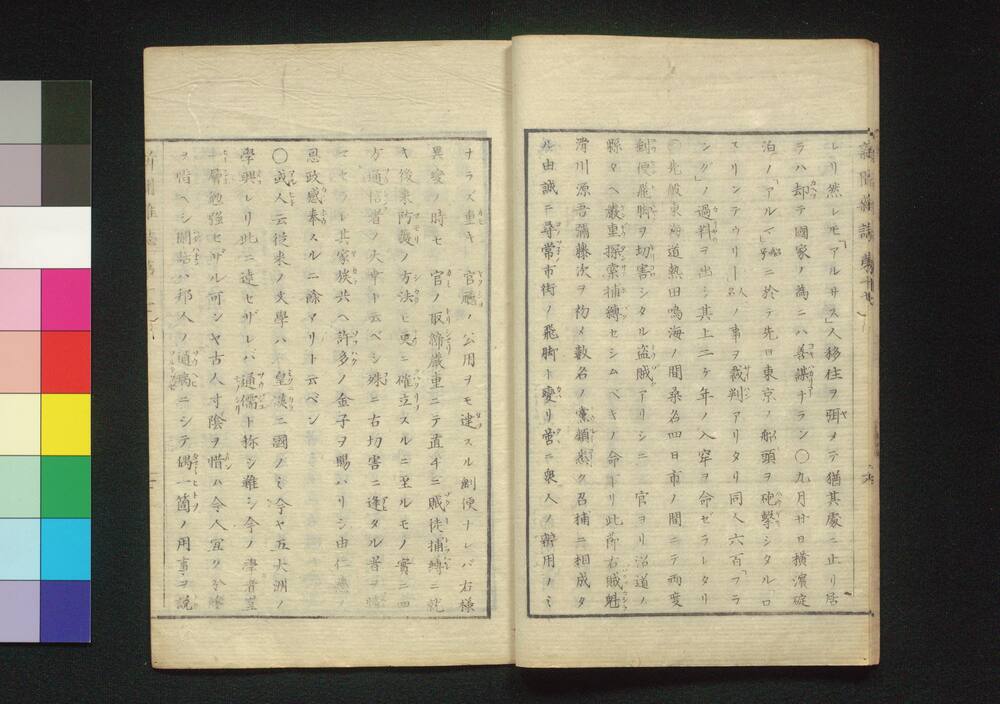 新聞雑誌 第十七
レリ然レモ「アルサス」人移住ヲ弭メテ猶其處ニ止リ居
ラハ却テ國家ノ為ニハ善謀ナラン〇九月廿日横濱碇
泊ノ「アルマ」号ニ於テ先日東京ノ船頭ヲ砲撃シタル「ロ
スリンテウリー」人名ノ事ヲ裁判アリタリ同人六百「フラ
ンク」ノ過料ヲ出シ其上二ケ年ノ入牢ヲ命ゼラレタリ
〇先般東海道熱田鳴海ノ間桑名四日市ノ間ニテ両度
刻便飛脚ヲ切害シタル盗賊アリシニ 官ヨリ沿道ノ
縣々ヘ嚴重探索捕縛セシムベキノ命下リ此節右賊魁
滑川源吾彌藤次ヲ初メ數名ノ黨類悉ク召捕ニ相成タ
ル由誠ニ尋常市街ノ飛脚ト變リ啻ニ衆人ノ需用ノミ
ナラズ重キ 官廳ノ公用ヲモ達スル刻便ナレバ右様
異變ノ時モ 官ノ取締嚴重ニテ直チニ賊徒捕縛ニ就
キ後来防護ノ方法モ更ニ確立スルニ至ルモノ實ニ四
方通信者ノ大幸ト云ベシ殊ニ右切害ニ逢タル者ヲ
セラレ其家族共ヘ許多ノ金子ヲ賜ハリシ由仁恵
恩政感奉スルニ餘マリト云ベシ
〇或人云従来ノ文學ハ 皇漢二國ノミ今ヤ五大洲ノ
學興レリ此ニ達セザレバ通儒ト称シ難シ今ノ學者豈
一層勉強セザル可ンヤ古人寸陰ヲ惜ハ今人宜ク分陰
ヲ惜ベシ閑話ハ邦人ノ通病ニシテ偶一箇ノ用事ヲ説